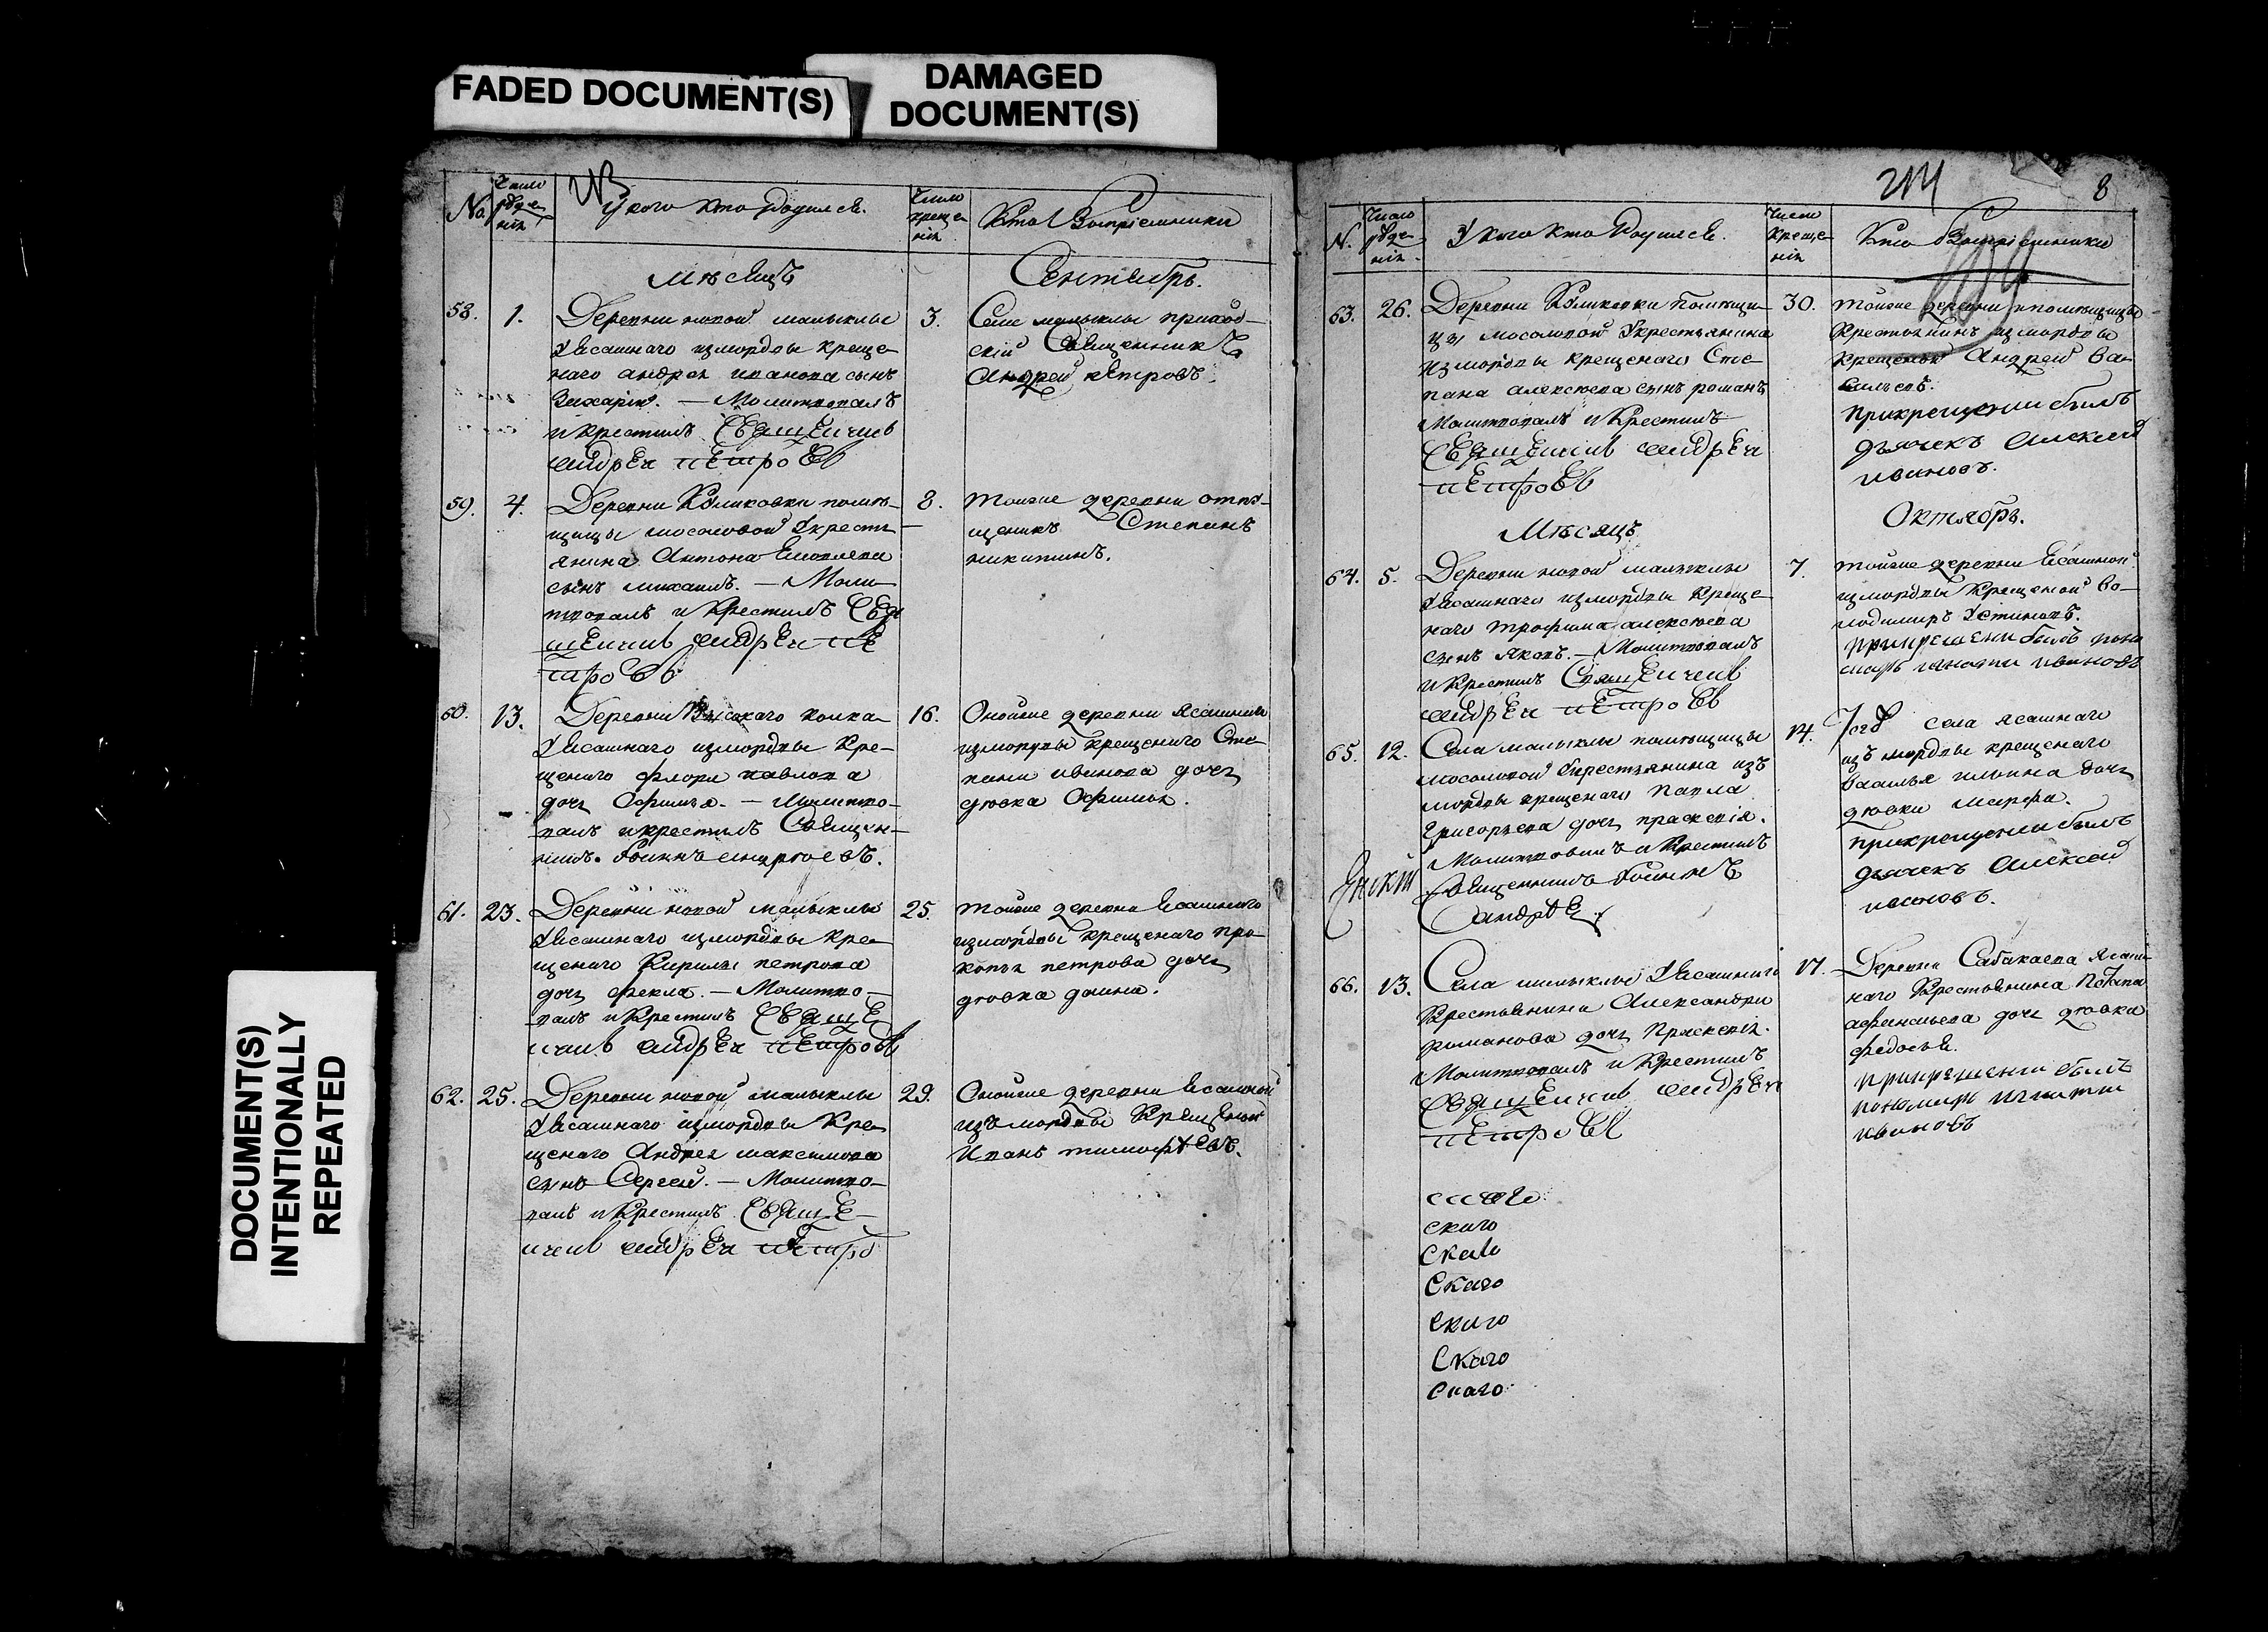 FADED DOCUMENT(S)
DAMAGED
DOCUMENT(S)
DOCUMENT(S)
INTENTIONALLY
REPEATED
№
Число
рожде-
нія
У кого кто родился.
Число
креще-
нія
Кто Воспріемники
Мѣсяцъ
Сентябрь.
58. 1.
Деревни новой малыклы
У Ясашнаго измордвы креще-
наго андрея иванова сынъ
Захарій. — Молитвовалъ
и крестилъ Священикъ
андреи петровъ
3.
Села малыклы приход-
скій Священникъ
Андрей петровъ.
59. 4.
Деревни Куликовки помѣ-
щицы мосоловой Укресть-
янина Антона
сынъ михаилъ. — Моли
твовалъ и Крестилъ Свя
щеникъ андреи пе
тровъ
8.
тойже деревни отпу-
щеникъ Степанъ
никитинъ.
60. 13.
Деревни Высокаго колка
У Ясашнаго измордвы Кре-
щенаго флора павлова
дочь Офимья. — Молитво-
валъ икрестилъ Священ-
никъ Іоаннъ андреевъ.
16.
Онойже деревни Ясашнаго
измордвы крещенаго Сте-
пана иванова дочь
девка Офимья.
61. 23.
Деревни новой малыклы
У Ясашнаго измордвы кре-
щенаго Кирилы петрова
дочь фекла. — Молитво-
валъ и Крестилъ Священ
никъ андреи петровъ
25.
тойже деревни Ясашнаго
измордвы крещенаго про-
копья петрова дочь
девка
62. 25.
Деревни новой малыклы
У Ясашнаго измордвы Кре-
щенаго Андрея максимова
сынъ Сергей. — Молитво-
валъ и Крестилъ Свяще-
никъ андреи петро
29.
Онойже деревни Ясашной
изъ мордвы Крещеной
Иванъ тимофѣевъ.
8
№.
Число
рожде-
нія
У кого кто родился.
Число
Креще-
нія
Кто Воспріемники
63. 26.
Деревни Куликовки помѣщи-
цы мосоловой Укрестьянина
измордвы крещенаго Сте-
пана алексѣева сынъ романъ
Молитвовалъ и Крестилъ
Священикъ андреи
петровъ
30.
тойже деревни и помѣщицы
Крестьянинъ измордвы
крещеный Андрей ва-
сильевъ.
прикрещении былъ
дьячекъ Алексей
ивановъ.
Мѣсяцъ
Октябрь.
64. 5.
Деревни новой малыклы
У Ясашнаго измордвы креще-
наго трофима алексѣева
сынъ яковъ. — Молитвовалъ
и Крестилъ Священикъ
андреи петровъ
7.
тойже деревни Ясашной
измордвы Крещеной во-
лодимиръ Устиновъ.
при крещении былъ поно
марь ивановъ
65. 12.
Села малыклы помѣщицы
мосоловой Укрестьянина изъ
мордвы крещенаго Павла
Григорьева дочь прасковія.
Молитвовалъ и Крестилъ
Священникъ Іоаннъ
андрѣе
14.
села ясашнаго
изъ мордвы крещенаго
василья ильина дочь
девка марфа.
прикрещении былъ
дьячекъ Алексей
ивановъ.
66. 13.
Села малыклы У Ясашнаго
Крестьянина Александра
романова дочь Прасковія.
Молитвовалъ и Крестилъ
Священикъ андреи
петровъ
17.
Деревни Сабакаева Ясаш-
наго Крестьянина Потапа
афанасьева дочь девка
федосья.
при крещении былъ
пономарь игнатии
ивановъ
скаго
скаго
скаго
Скаго
скаго
Скаго
скаго